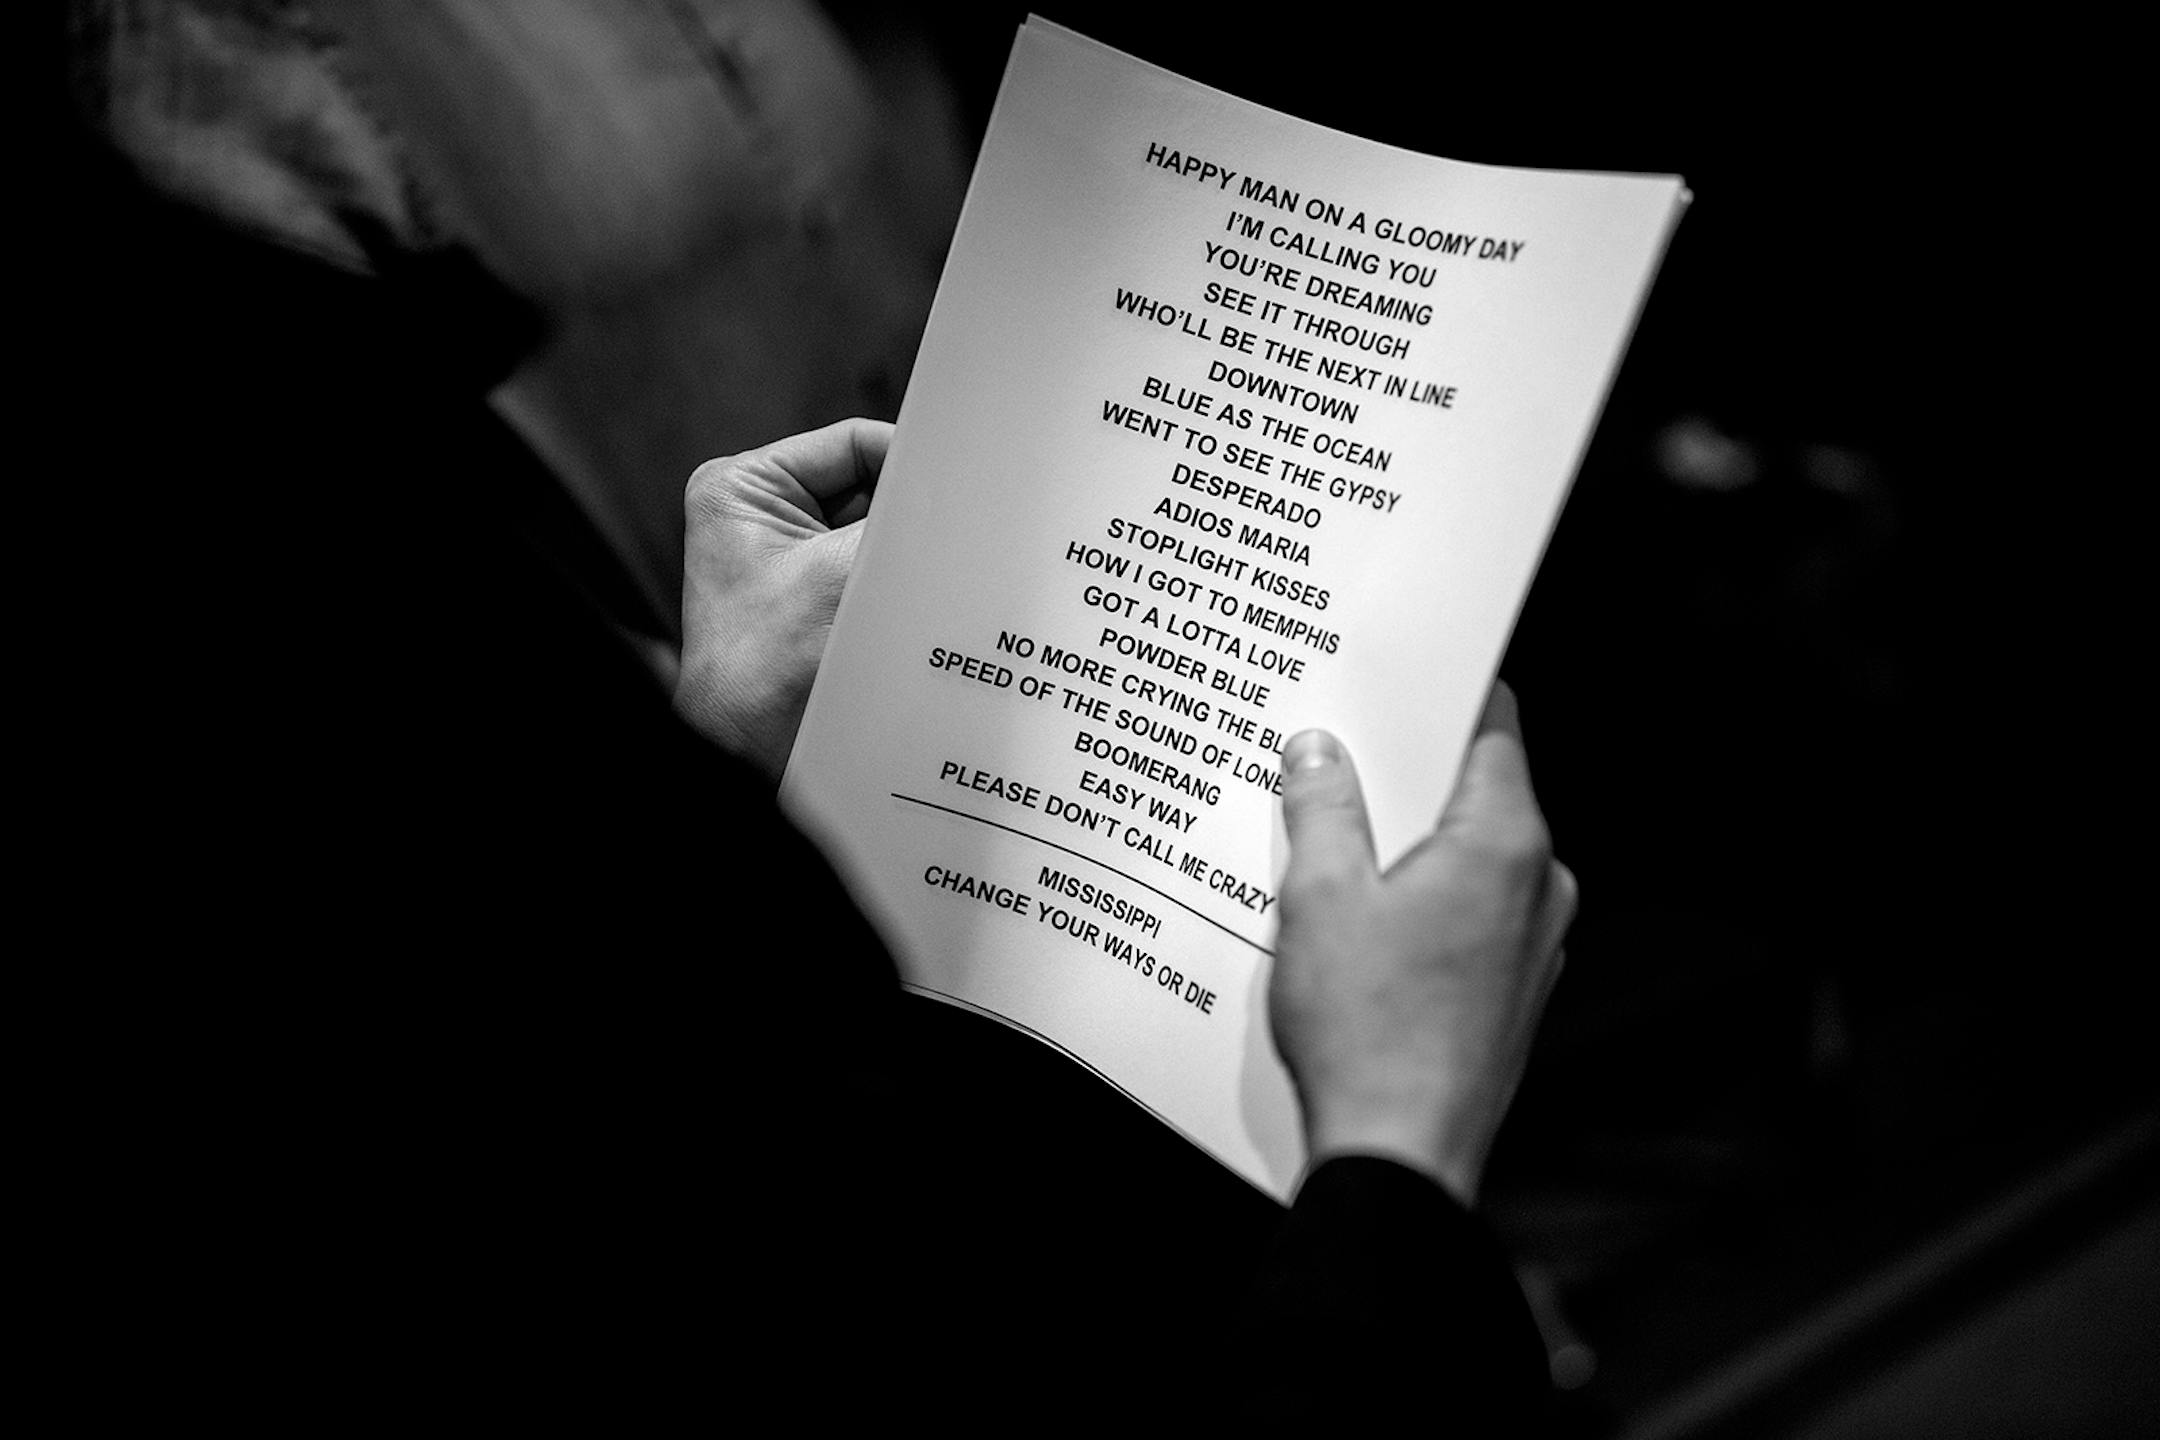 HAPPY MAN ON A GLOOMY DAY
I'M CALLING YOU
YOU'RE DREAMING
SEE IT THROUGH
WHO'LL BE THE NEXT IN LINE
DOWNTOWN
BLUE AS THE OCEAN
WENT TO SEE THE GYPSY
DESPERADO
ADIOS MARIA
STOPLIGHT KISSES
HOW I GOT TO MEMPHIS
GOT A LOTTA LOVE
POWDER BLUE
NO MORE CRYING THE
SPEED OF THE SOUND OF
BOOMERANG
EASY WAY
PLEASE DON'T CALL ME CRAZY
MISSISSIPPI
CHANGE YOUR WAYS OR DIE